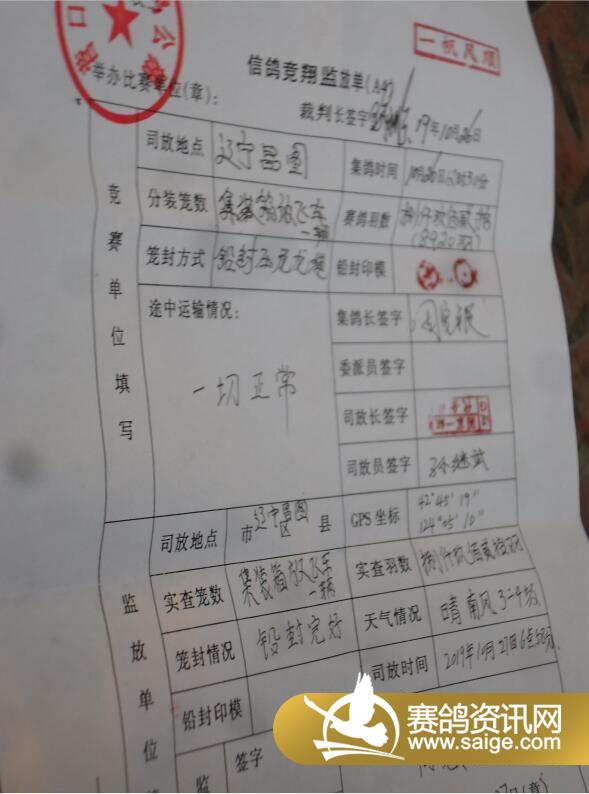 一帆风顺
营口
信鸽竞翔监放单(A4)
举办比赛单位(章):
裁判长签字 19年10月26日
竞赛单位填写
司放地点 辽宁昌图 集鸽时间
分装笼数 集装箱放飞车一辆 赛鸽羽数 捌仟玖佰贰拾
(8920羽)
笼封方式 铅封 铅封印模
途中运输情况: 集鸽长签字
一切正常 委派员签字
司放长签字
司放员签字
监放单位
司放地点 市辽宁昌图区 县 GPS 坐标 42°45′19″
124°05′10″
实查笼数 集装箱放飞车一辆 实查羽数 捌仟玖佰贰拾羽
笼封情况 铅封完好 天气情况 晴南风3-4级
铅封印模 司放时间 2019年10月27日6点50分
监 签字
赛鸽资讯网
www.saige.com